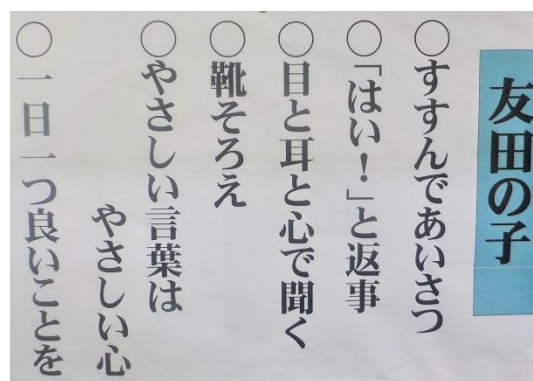 友田の子
○すすんであいさつ
○「はい！」と返事
○目と耳と心で聞く
○靴そろえ
○やさしい言葉は
やさしい心
○一日一つ良いことを